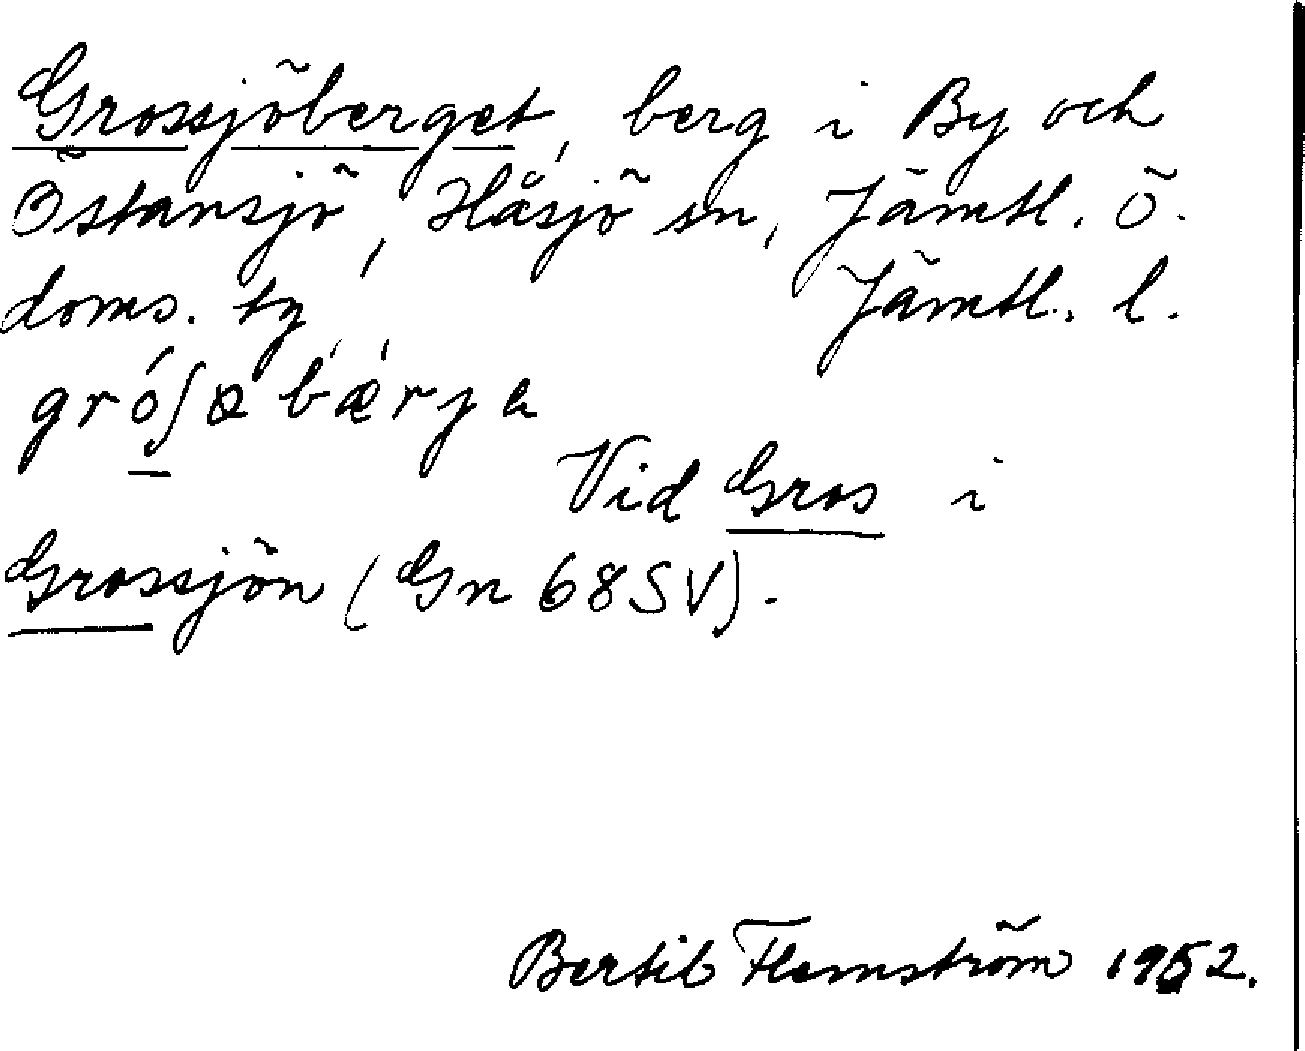 Grossjöberget, berg i By och
Östansjö, Håsjö sn, Jämtl. ö.
doms. ty, Jämtl. l.
Vid Gros i
Grossjön (Gn 68SV).
Bertil Flemström 1952.